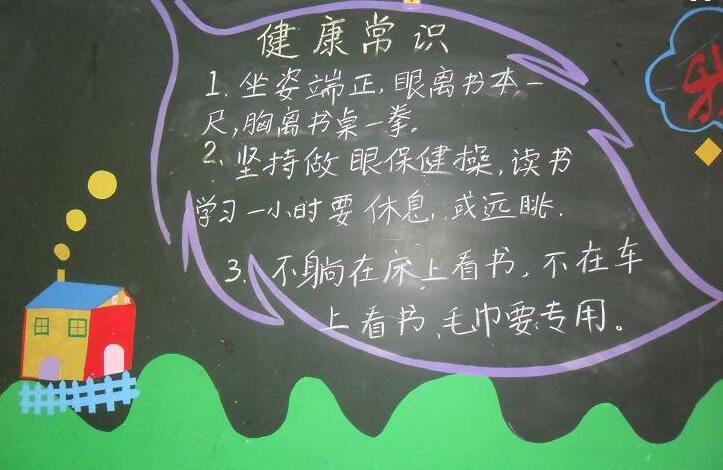 健康常识
1. 坐姿端正,眼离书本一
尺,胸离书桌一拳。
2、坚持做眼保健操,读书
学习一小时要休息,或远眺.
3、不躺在床上看书,不在车
上看书、毛巾要专用。